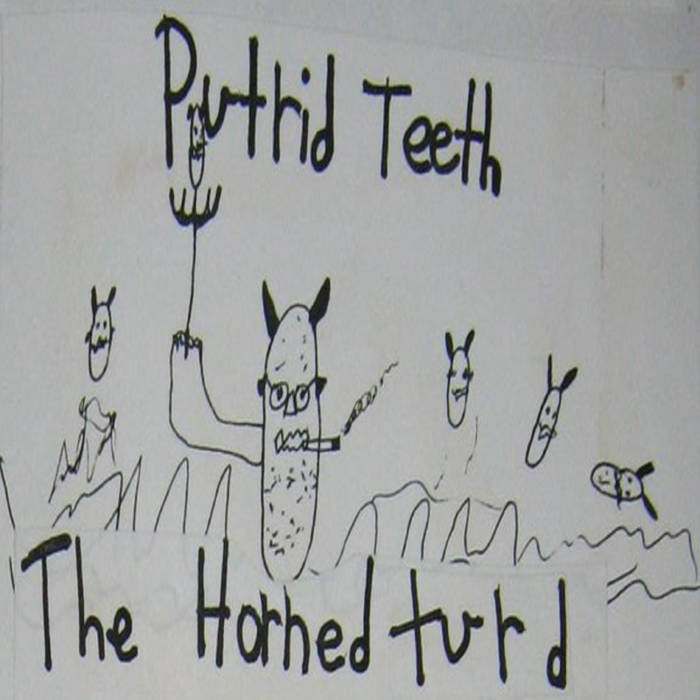 Putrid Teeth
The Horned turd